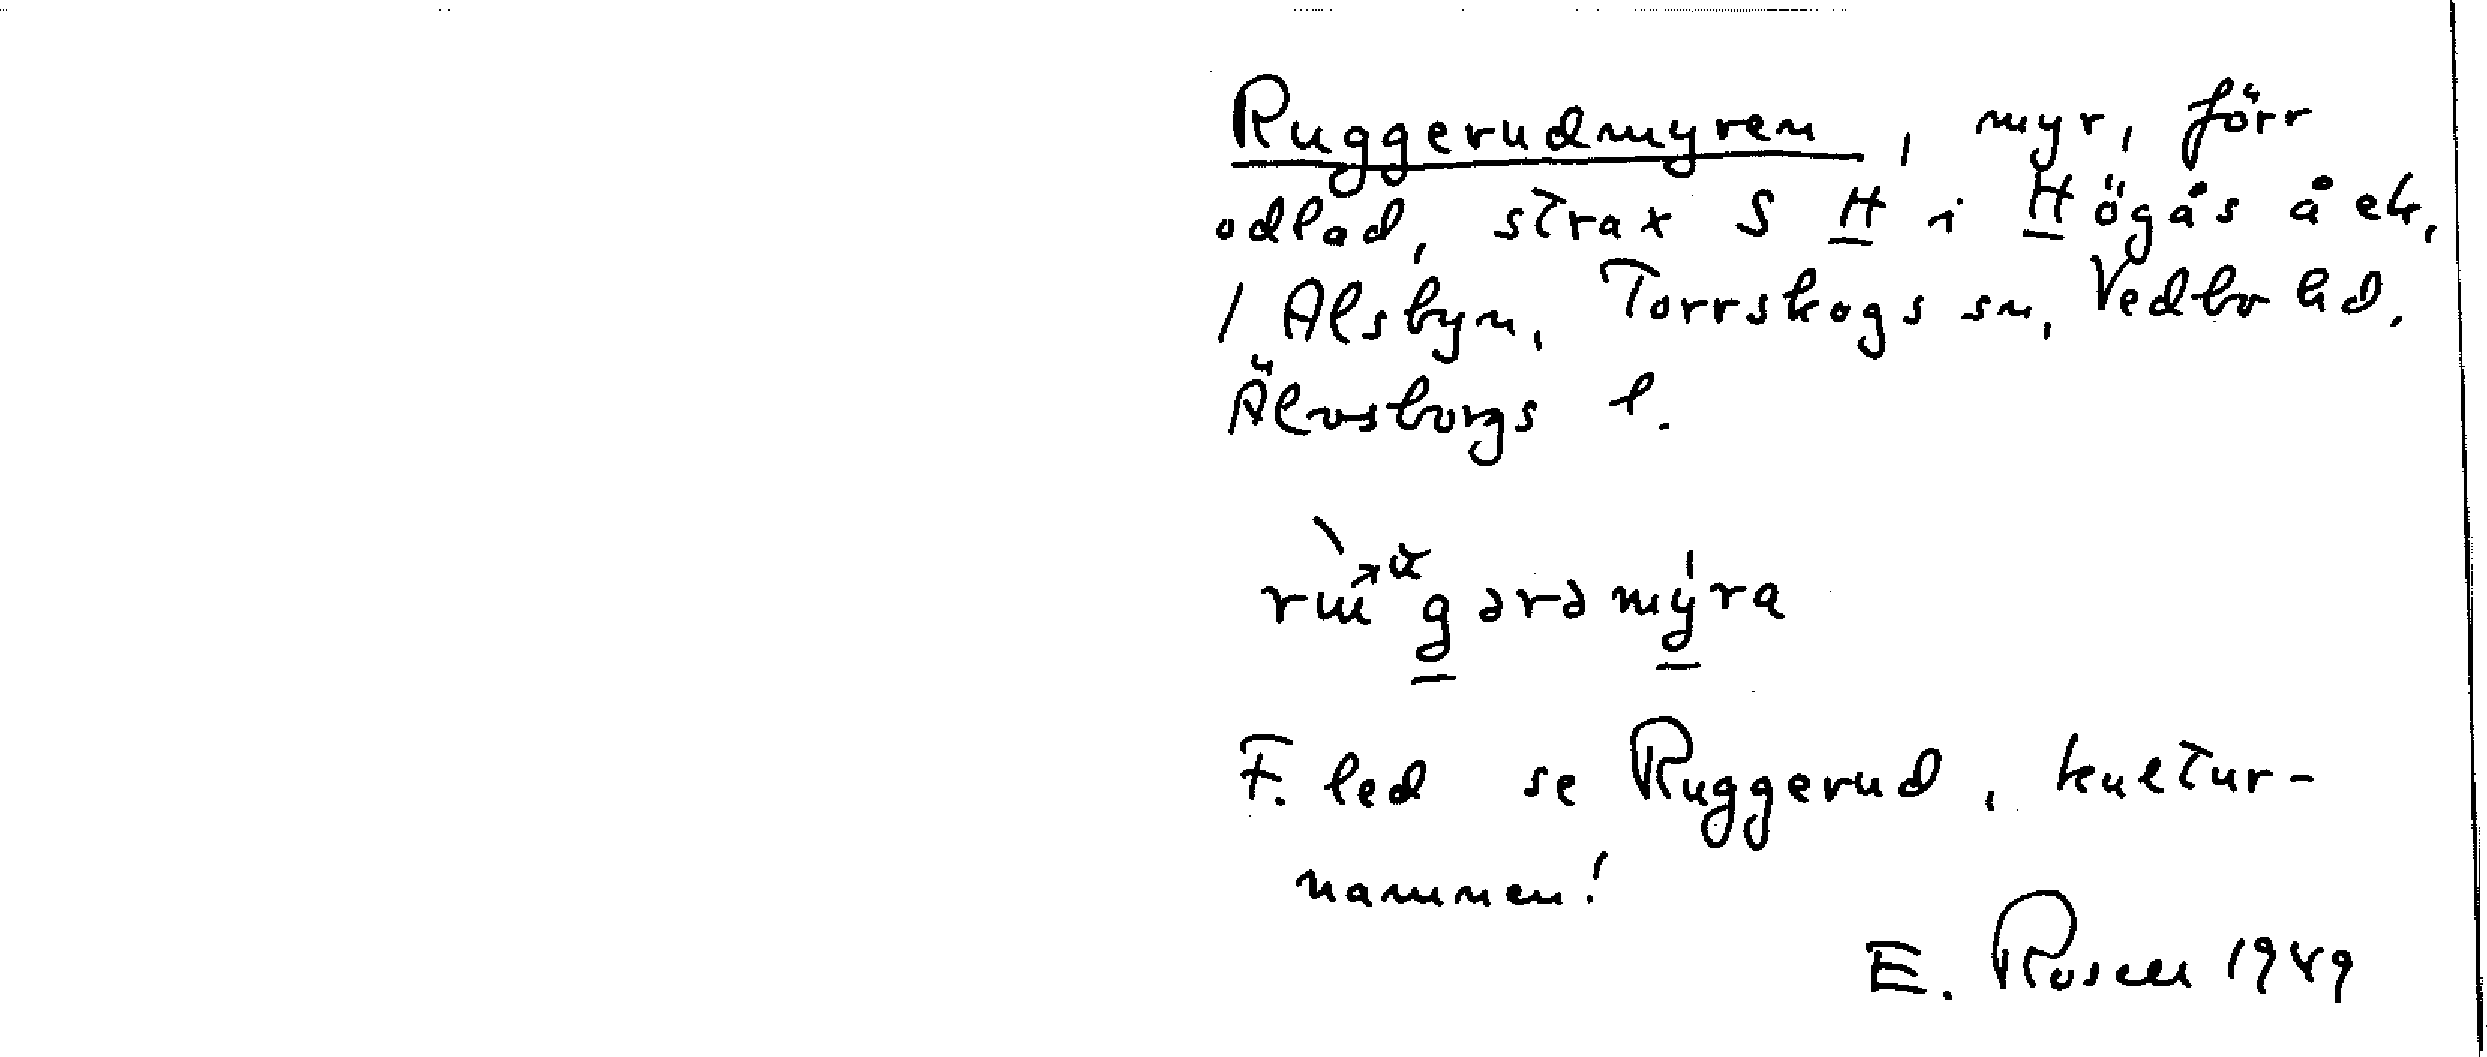 Ruggerudmyren, myr, förr
odlad, strax S H i Högås å ek,
1 Alsbyn, Torrskogs sn, Vedbo hd,
Älvsborgs l.
F. led se Ruggerud, kultur-
namnen!
E. Rosell 1949